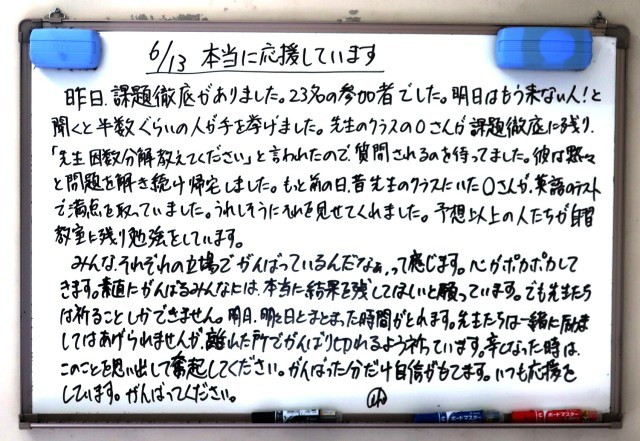 6/13 本当に応援しています
昨日、課題徹底がありました。23名の参加者でした。明日はもう来ない人！と
聞くと半数ぐらいの人が手を挙げました。先生のクラスの〇さんが課題徹底に残り、
「先生因数分解教えてください」と言われたので、質問されるのを待ってました。彼は黙々
と問題を解き続け帰宅しました。もっと前の日、昔先生のクラスにいた〇さんが、英語のテスト
で満点を取っていました。うれしそうにそれを見せてくれました。予想以上の人たちが自習
教室に残り勉強をしています。
みんな、それぞれの立場でがんばっているんだなぁ、って感じます。心がポカポカして
きます。素直にがんばるみんなには、本当に結果を残してほしいと願っています。でも先生たち
は祈ることしかできません。明日、明後日とまとまった時間がとれます。先生たちは一緒に励ま
してはあげられませんが、離れた所でがんばり切れるよう祈っています。辛くなった時は、
このことを思い出して奮起してください。がんばった分だけ自信がもてます。いつも応援を
しています。がんばってください。
ボードマスター
ボードマスター